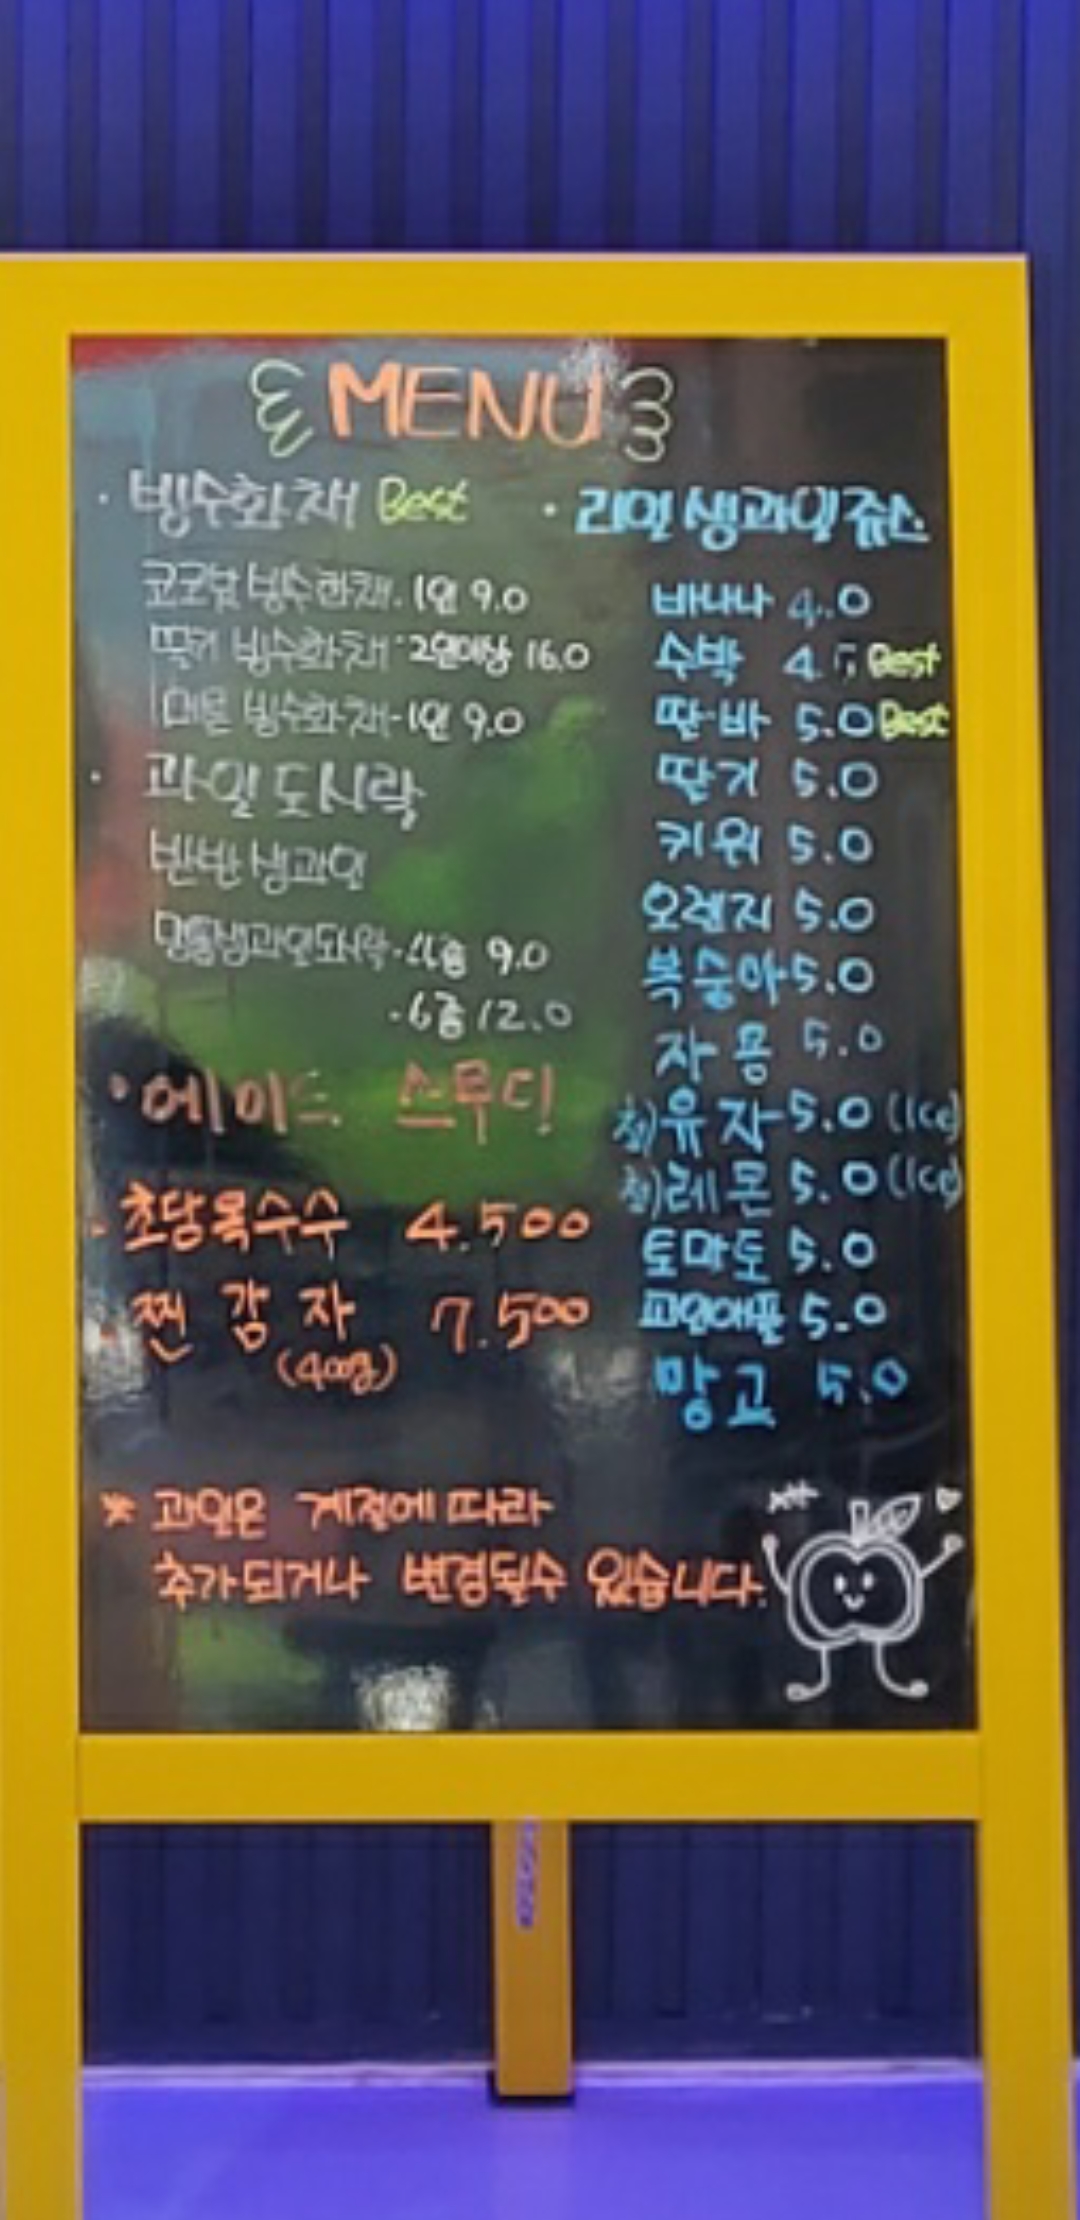 MENU
· 빙수화채 Best
코코넛 빙수화채 · 1인 9.0
딸기 빙수화채 · 2인이상 16.0
메론 빙수화채 - 1인 9.0
· 과일도시락
반반 생과일
생과일도시락 · 4종 9.0
· 6종 12.0
· 에이드 스무디
· 초당옥수수 4.500
· 찐 감 자 7.500
(400g)
· 리얼생과일쥬스
바나나 4.0
수박 4. Best
딸·바 5.0 Best
딸기 5.0
키위 5.0
오렌지 5.0
복숭아 5.0
자몽 5.0
청)유자 5.0 (Ice)
청)레몬 5.0 (Ice)
토마토 5.0
파인애플 5.0
망고 5.0
* 과일은 계절에 따라
추가되거나 변경될수 있습니다.